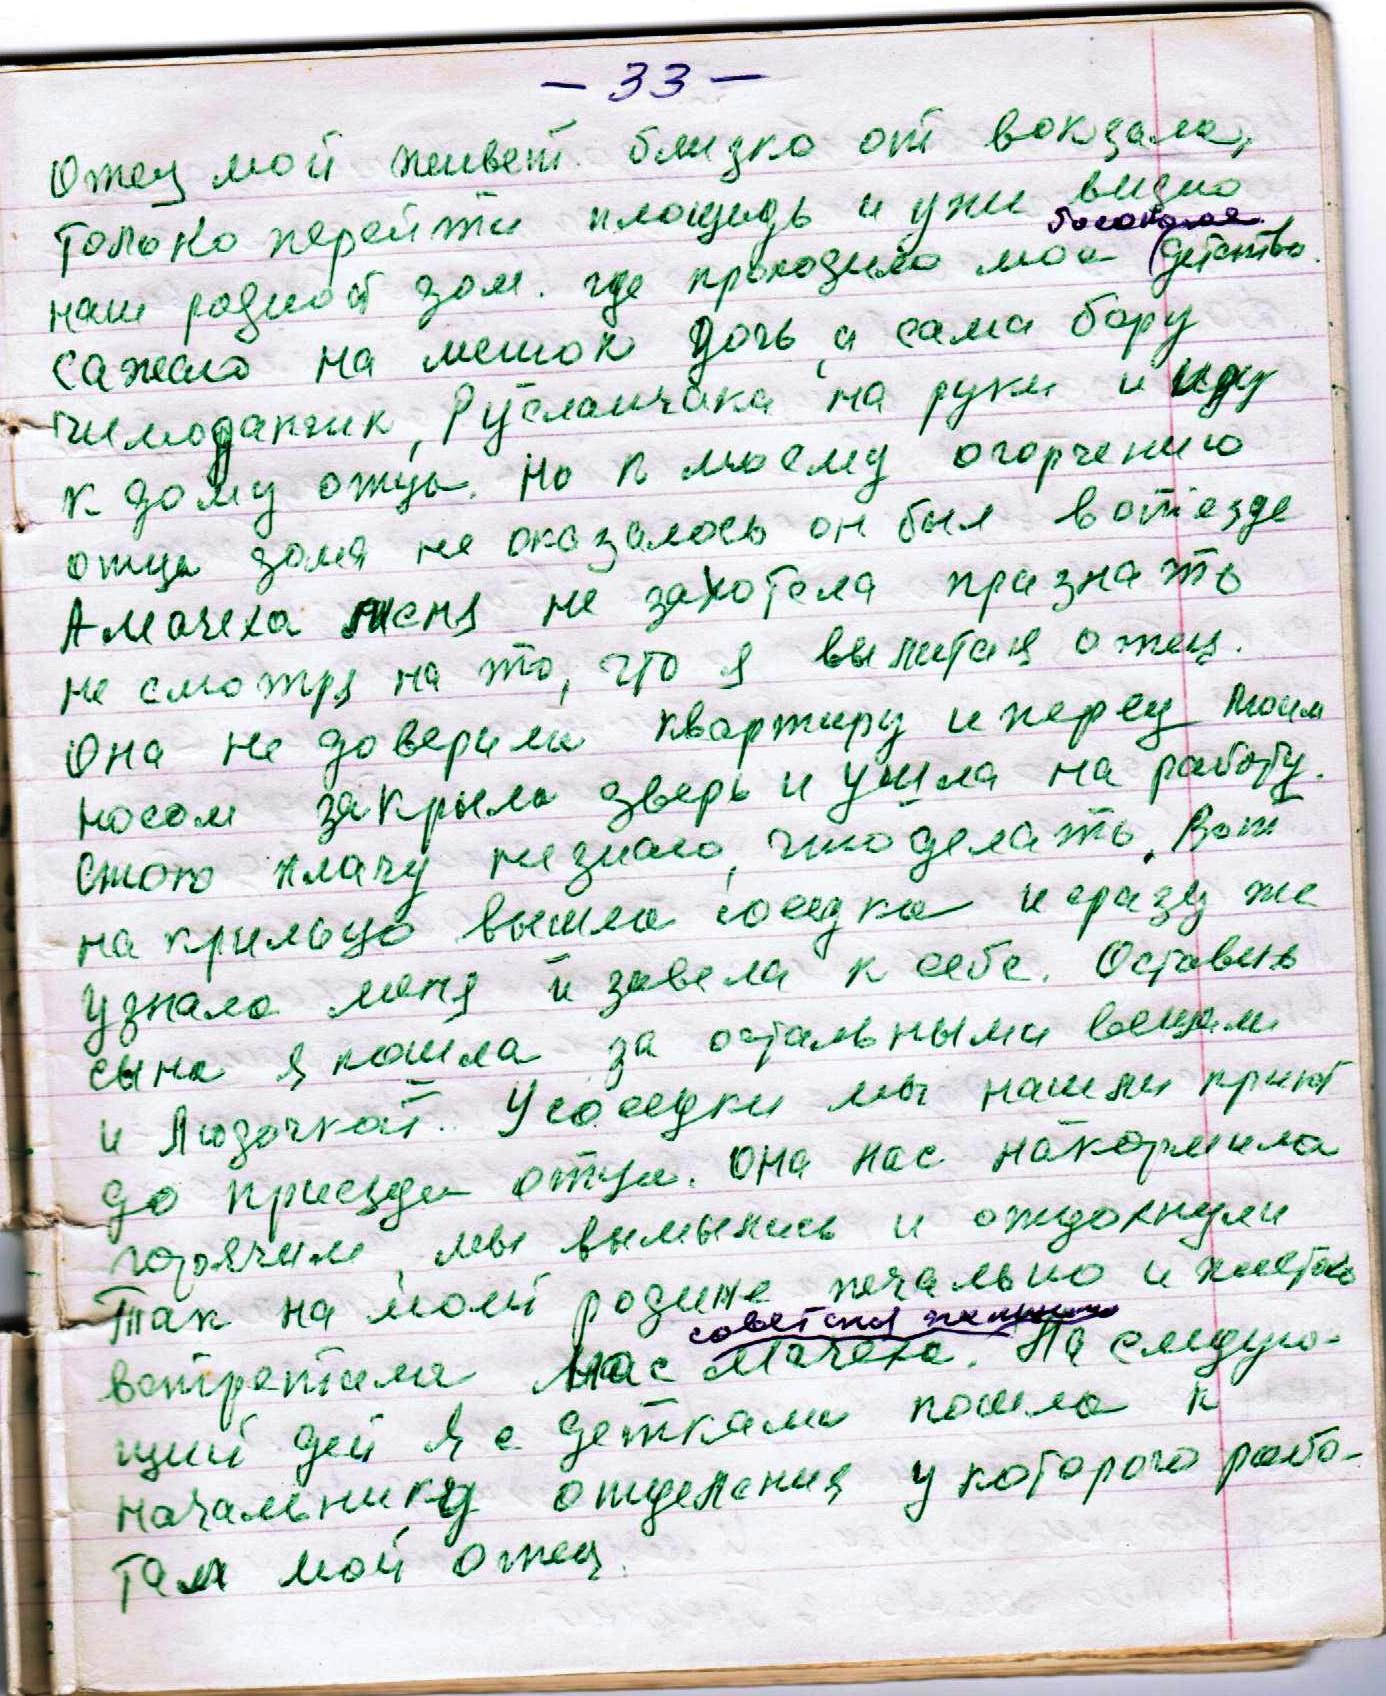 — 33 —
Отец мой живет близко от вокзала,
только перейти площадь и уже видно
босоногое
наш родной дом. где проходило мое детство.
Сажаю на мешок дочь, а сама беру
чимоданчик, Русланчика на руки и иду
к дому отца. Но к моему огорчению
отца дома не оказалось он был в отъезде
А мачеха меня не захотела признать
не смотря на то, что я вылитая отец.
Она не доверила квартиру и перед моим
носом закрыла дверь и ушла на работу.
Стою плачу не знаю, что делать. Вот
на крильцо вышла соседка и сразу же
узнала меня и завела к себе. Оставив
сына я пошла за остальными вещами
и Людочкой. У соседки мы нашли приют
до приезда отца. Она нас накормила
горячим, мы вымылись и отдохнули
Так на моей родине печально и жестоко
советская
встретила нас мачеха. На следую-
щий дей я с детками пошла к
начальнику отделения у которого рабо-
тал мой отец.